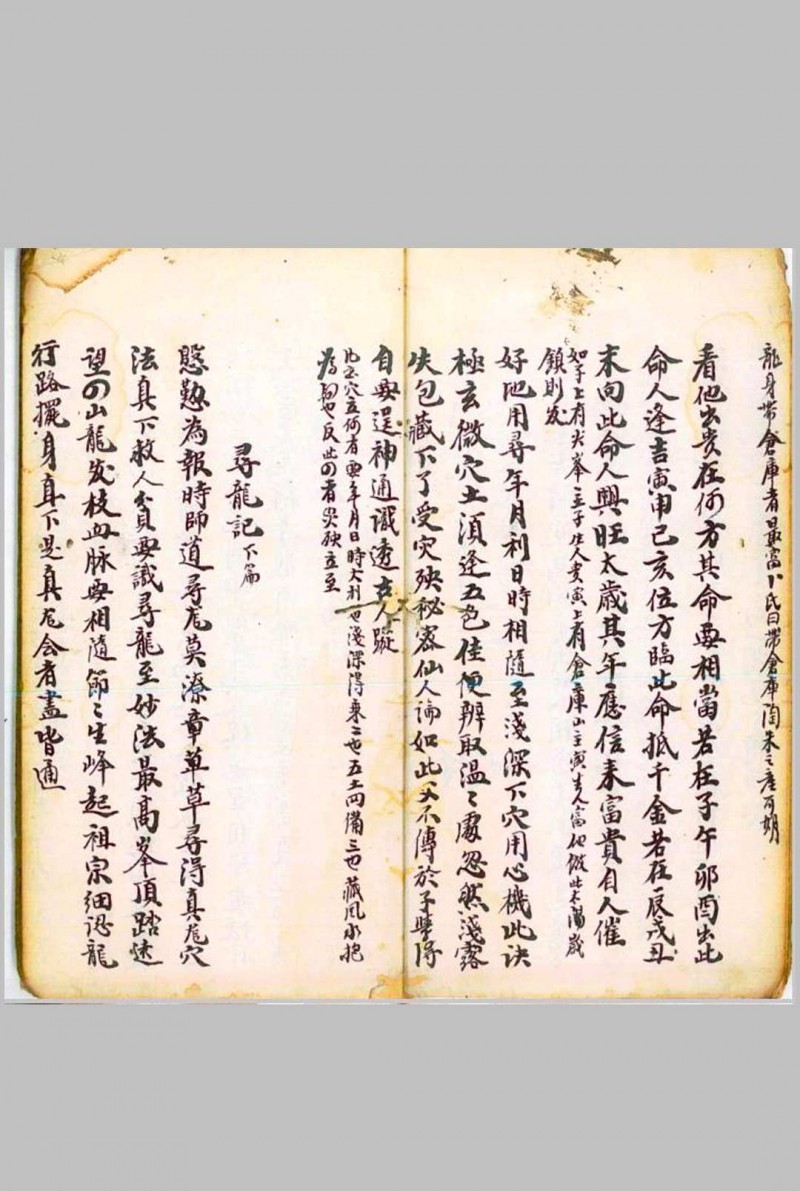 龍身帶倉庫者最富卜氏曰帶倉庫陶朱之產可期
看他出貴在何方其命要相當若在子午卯酉出此
命人逢吉寅申巳亥位方臨此命抵千金若在辰戌丑
未向此命人興旺太歲其年應信来富貴自人催
如子上有尖峯主子生人貴寅上有倉庫山主寅生人富他倣此太歲
鎮則发
好地用尋年月利日時相隨至淺深下穴用心機此诀
極玄微穴土須逢五色佳便辨取温〻處忽然淺露
失包藏下了受灾殃秘宻仙人論如此父不傳於子學得
自要逞神通識透古人蹤
此言穴立何者要年月日時大利一也淺深得乘二也五土四備三也藏风水抱
為四也反此四者災殃立至
尋龍記下篇
慇懃為報時師道尋龙莫潦章草草尋得真龙穴
法真下救人貧要識尋龍至妙法最高峯頂踏逺
望の山龍发枝血脉要相隨節〻生峰起祖宗细認龍
行路擺身真下是真龙会者盡皆通